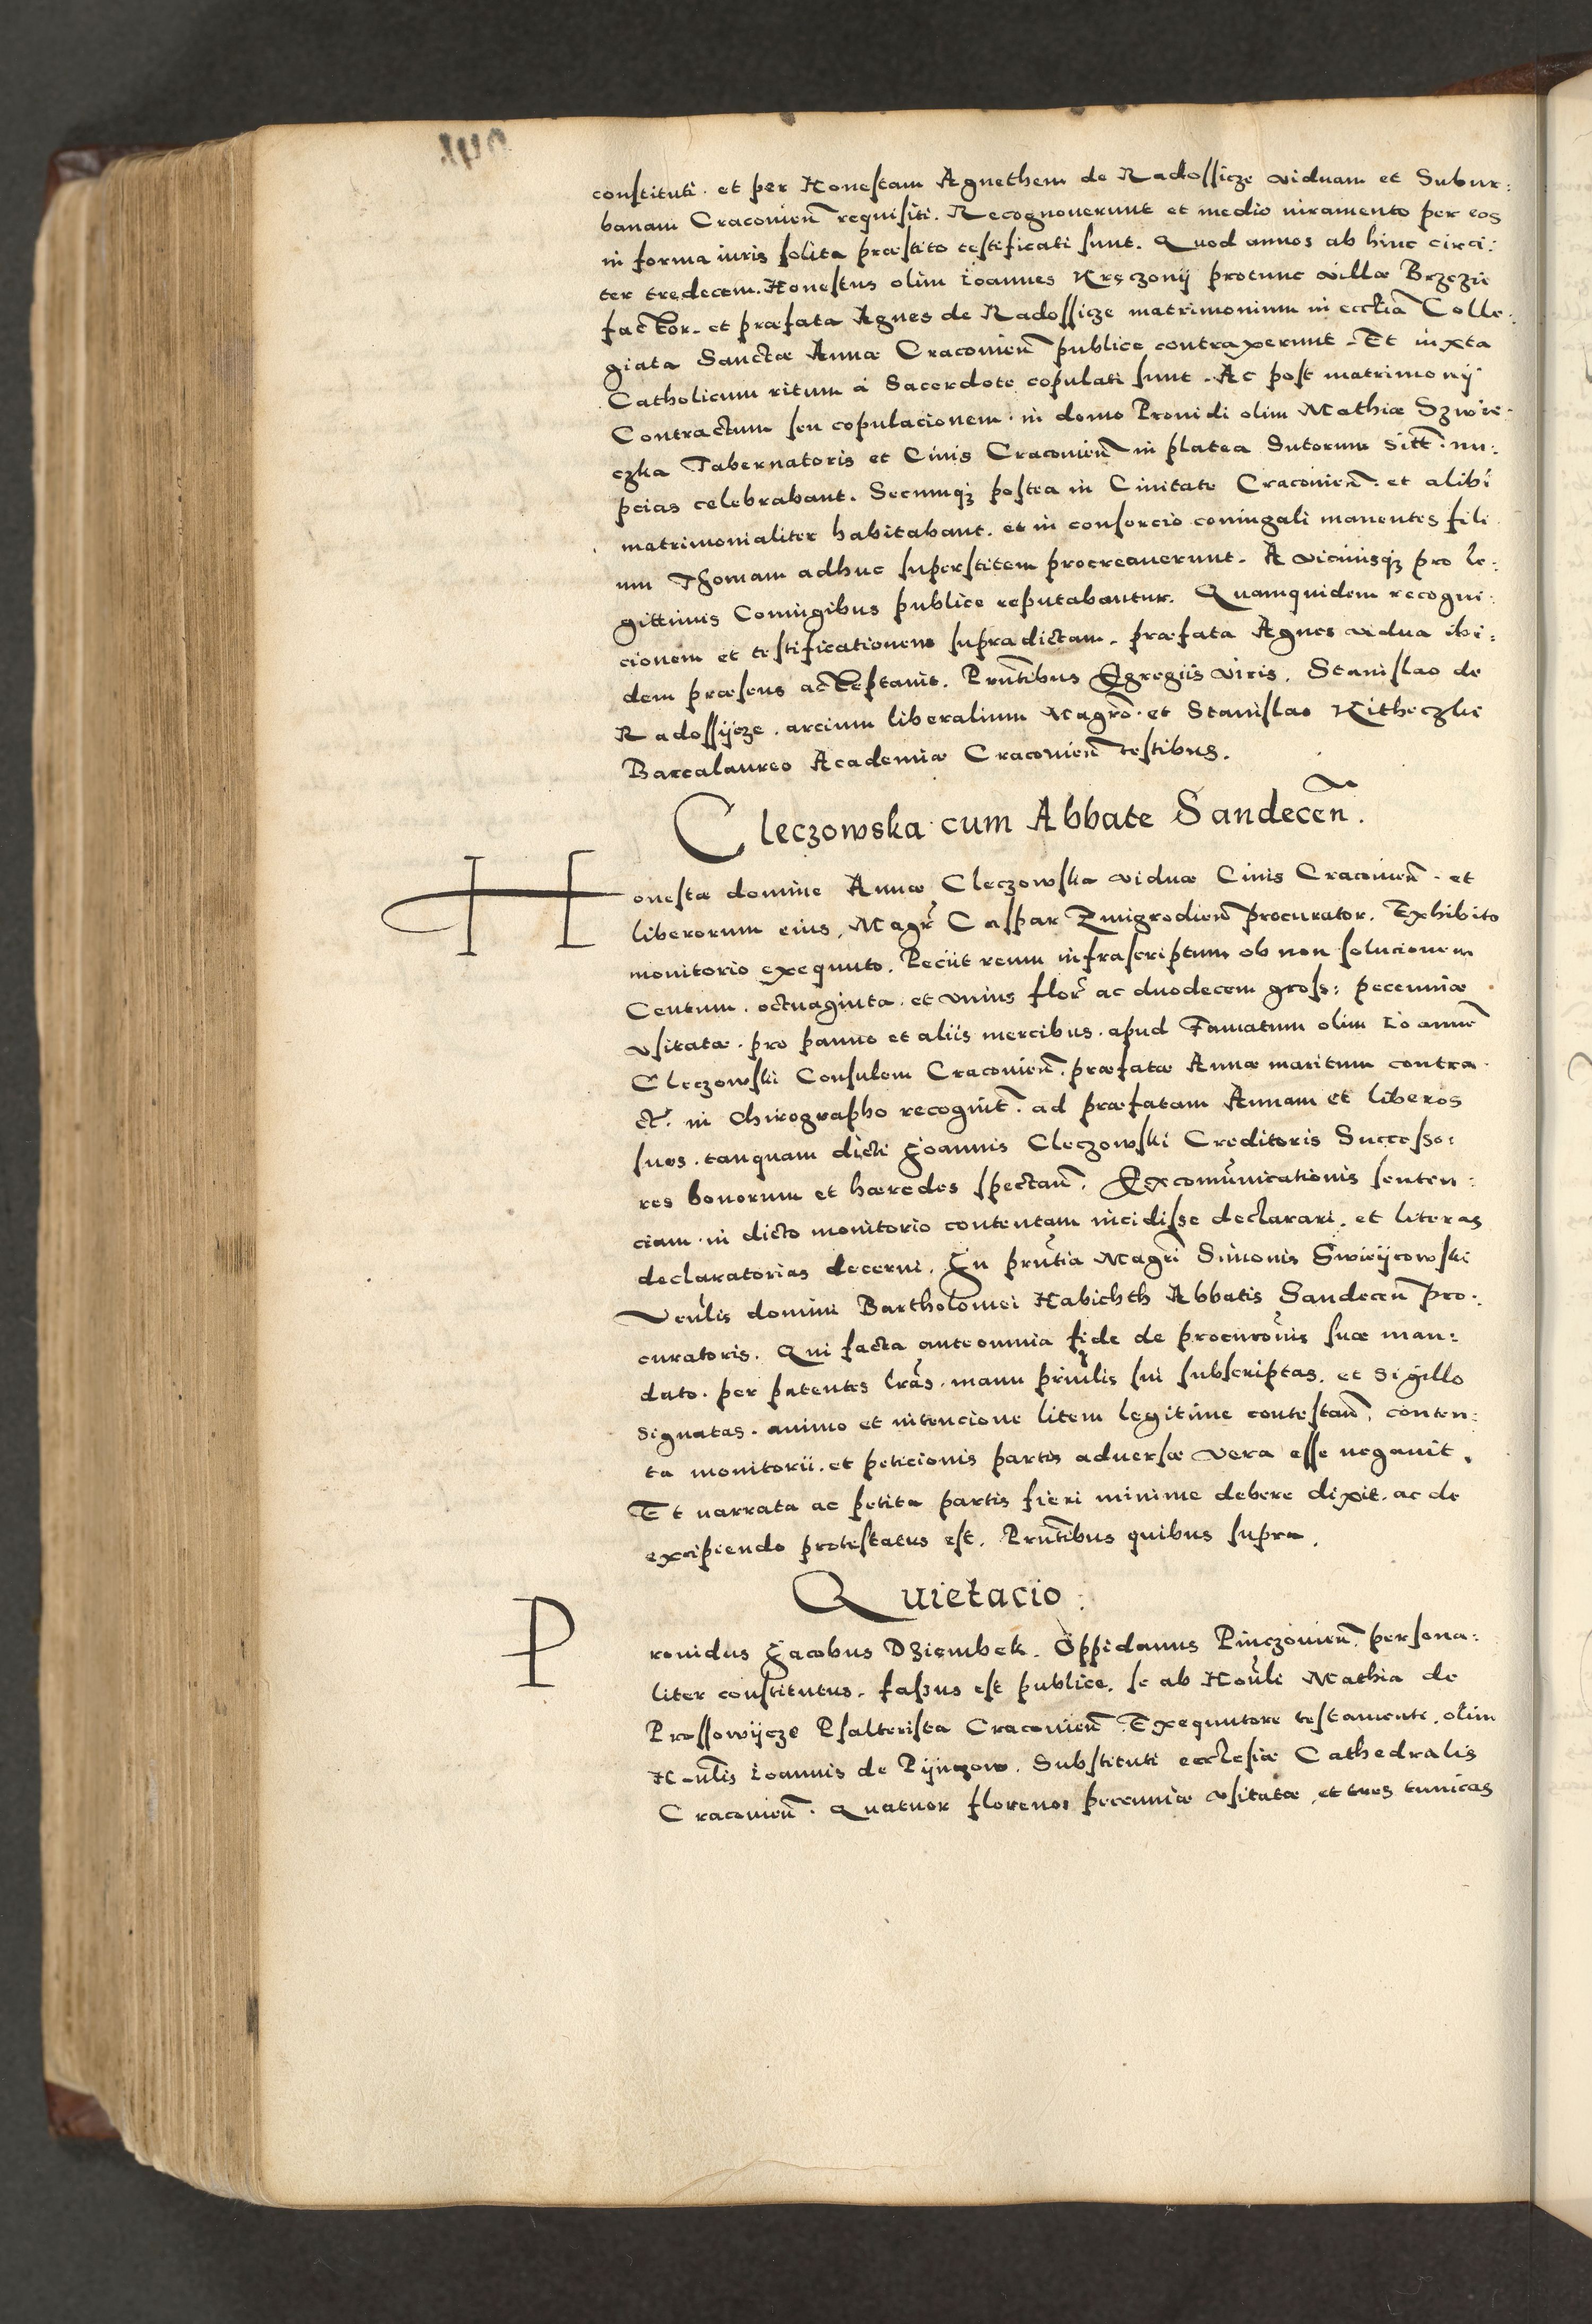 constituti. et per Honestam Agnethem de Radossicze viduam et Subur:
banam Cracovien̄ requisiti. Recognoverunt et medio iuramento per eos
in forma iuris solita præstito testificati sunt. Quod annos ab hinc circi:
ter tredecem. Honestus olim Ioannes Kręczonij protunc villæ Brzezie
factor. et præfata Agnes de Radossicze matrimonium in ecclīa Colle:
giata Sanctæ Annæ Cracovien̄ publice contraxerunt. Et iuxta
Catholicum ritum á Sacerdote copulati sunt. Ac post matrimonij
Contractum seu copulacionem. in domo Providi olim Mathiæ Szwie:
czka Tabernatoris et Civis Cracovien̄ in platea Sutorum sitt̄. nu:
pcias celebrabant. Secumqz postea in Civitate Cracovien̄. et alibi
matrimonialiter habitabant. et in consorcio coniugali manentes fili
um Thomam adhuc superstitem procreaverunt. A vicinisqz pro le:
gittimis Coniugibus publice reputabantur. Quamquidem recogni:
cionem et testificationem supradictam. præfata Agnes vidua ibi:
dem præsens acceptavit. Prūtibus Egregiis viris. Stanislao de
Radossijcze. arcium liberalium Magrō. et Stanislao Kitheczlie
Baccalaureo Academiæ Cracovien̄ testibus.
Cleczowska cum Abbate Sandecen̄.
Honestæ domine Annæ Cleczowska viduæ Civis Cracovien̄. et
liberorum eius, Magr̄ Caspar Zmigrodien̄ procurator. Exhibito
monitorio exequuto. Peciit reum infrascriptum ob non solucionem
Centum. octuaginta. et unius flor̄ ac duodecem gross: pecuniæ
usitatæ. pro panno et aliis mercibus. apud Famatum olim Ioannē
Cleczowski Consulem Cracovien̄. præfatæ Annæ maritum contra
ct̄. in Chirographo recognit̄. ad præfatam Annam et liberos
suos. tanquam dicti Joannis Cleczowski Creditoris Successo:
res bonorum et hæredes spectan̄. Excomūnicationis senten:
ciam. in dicto monitorio contentam incidisse declarari. et literas
declaratorias decerni. In prūtia Magrī Simonis Swieijcowski
Venlis domini Bartholomei Habichth Abbatis Sandecen̄ pro:
curatoris. Qui facta ante omnia fide de procurōnis suæ man:
dato. per patentes lrās. manu prinlis sui subscriptas. et sigillo
signatas. animo et intencione litem legitime contestan̄. conten:
ta monitorii. et peticionis partis adversæ vera esse negavit.
Et narrata ac petita partis fieri minime debere dixit. ac de
excipiendo protestatus est. Prūtibus quibus supra.
Quietacio:
Providus Jacobus Dziembek. Oppidanus Pinczovien̄. persona:
liter constitutus. fassus est publice. se ab Honli Mathia de
Prossowijcze Psalterista Cracovien̄. Exequutore testamenti. olim
Honlis Ioannis de Pijnczow. Substituti ecclesiæ Cathedralis
Cracovien̄. Quatuor florenos pecuniæ usitatæ, et tres tunicas